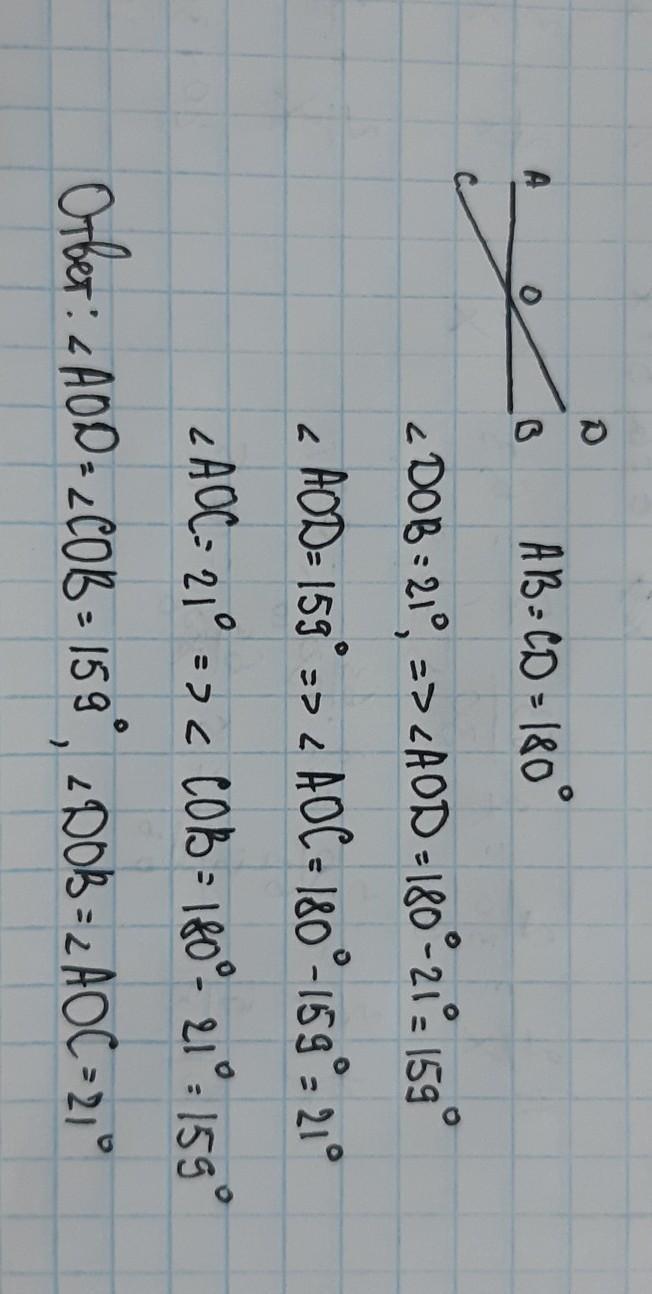 A
D
O
C
B
AB = CD = 180°
∠DOB = 21°, => ∠AOD = 180° - 21° = 159°
∠AOD = 159° => ∠AOC = 180° - 159° = 21°
∠AOC = 21° => ∠COB = 180° - 21° = 159°
Ответ: ∠AOD = ∠COB = 159°, ∠DOB = ∠AOC = 21°